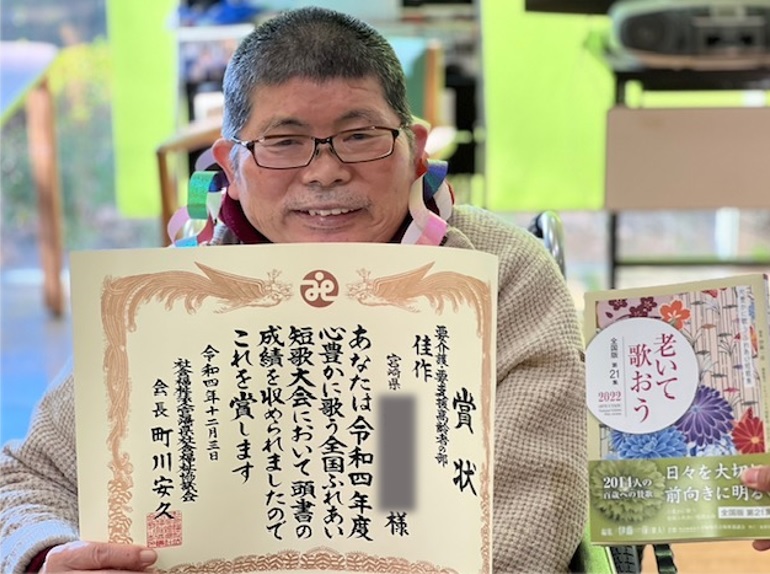 賞状
要介護・要支援高齢者の部
佳作
宮崎県
様
あなたは令和四年度
心豊かに歌う全国ふれあい
短歌大会において頭書の
成績を収められましたので
これを賞します
令和四年十二月三日
社会福祉法人宮崎県社会福祉協議会
会長 町川安久
老いて
歌おう
全国版 第21集
2022
2014人の
百歳への賛歌
日々を大切
前向きに明る
全国版 第21集